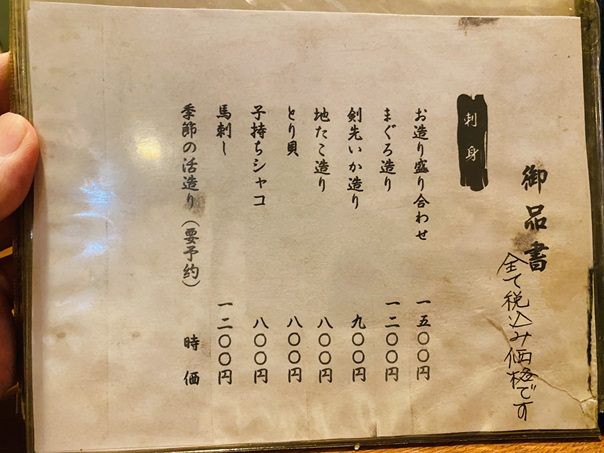 御品書
全て税込み価格です
刺身
お造り盛り合わせ 一五〇〇円
まぐろ造り 一二〇〇円
剣先いか造り 九〇〇円
地たこ造り 八〇〇円
とり貝 八〇〇円
子持ちシャコ 八〇〇円
馬刺し 一二〇〇円
季節の活造り(要予約) 時価